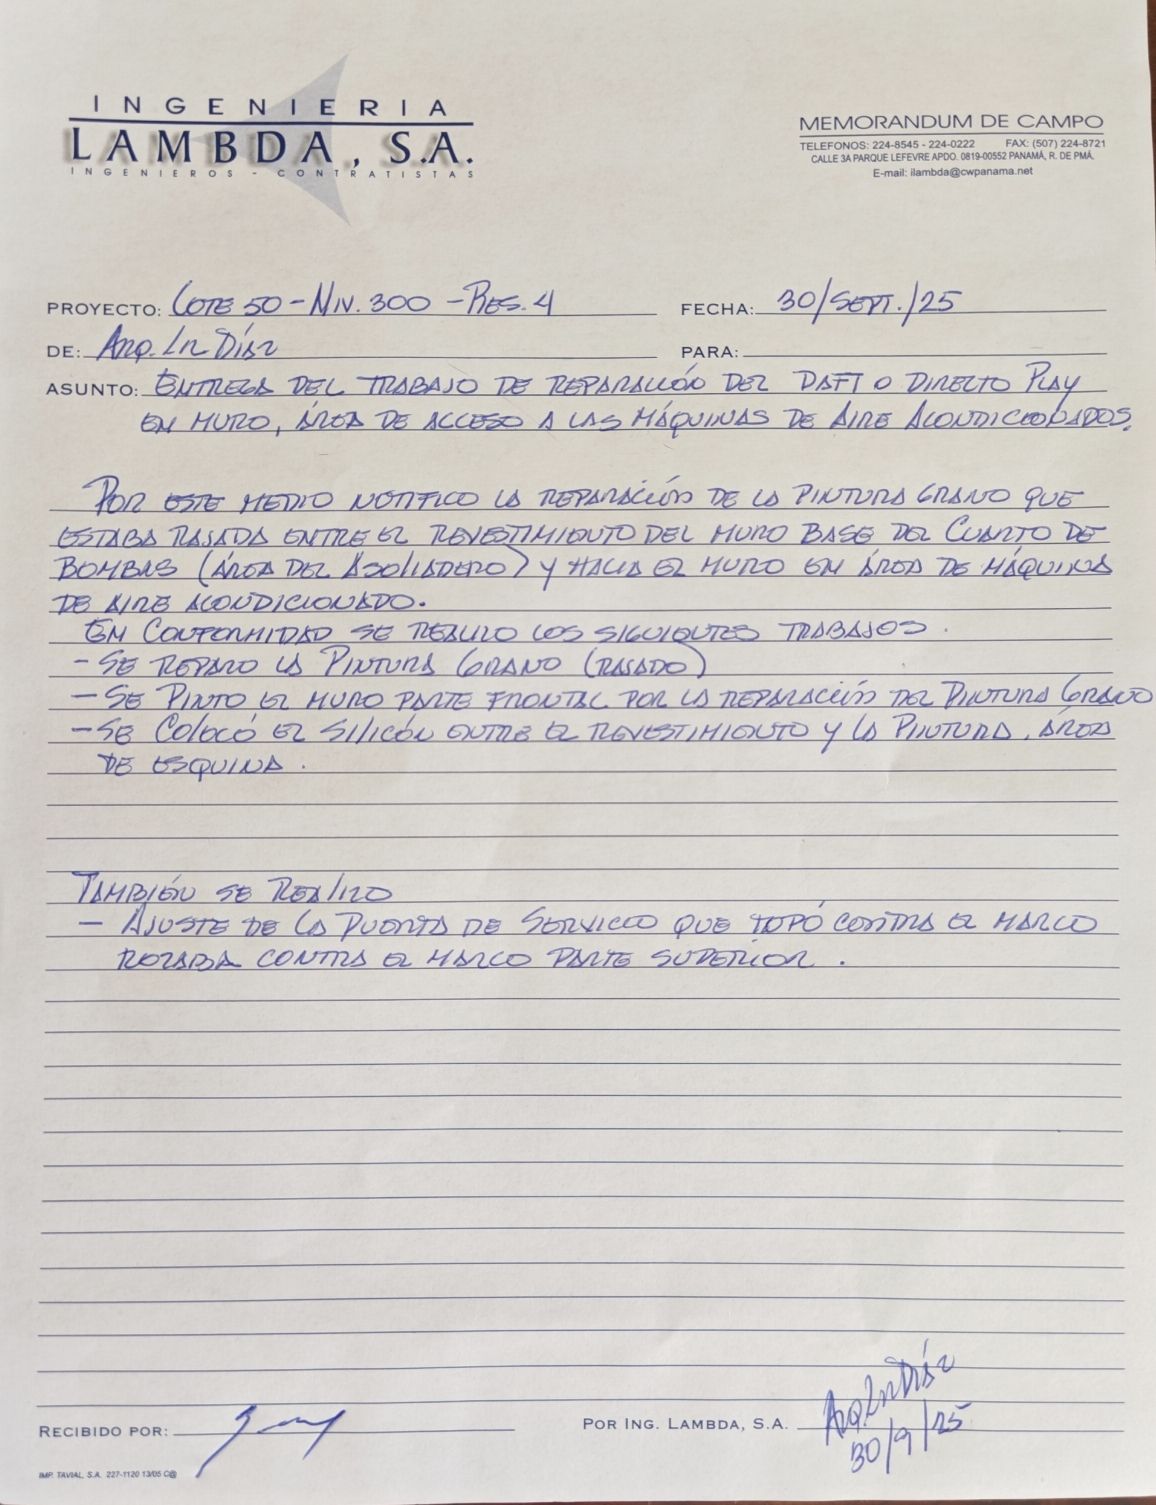 INGENIERIA
LAMBDA, S.A.
INGENIEROS - CONTRATISTAS
MEMORANDUM DE CAMPO
TELEFONOS: 224-8545 - 224-0222 FAX: (507) 224-8721
CALLE 3A PARQUE LEFEVRE APDO. 0819-00552 PANAMÁ, R. DE PMÁ.
E-mail: ilambda@cwpanama.net
PROYECTO: LOTE 50 - NIV. 300 - RES. 4 FECHA: 30/SEPT./25
DE: ARQ. Díaz PARA:
ASUNTO: ENTREGA DEL TRABAJO DE REPARACIÓN DEL DAFI O DIRECTO PLAY
EN MURO, ÁREA DE ACCESO A LAS MÁQUINAS DE AIRE ACONDICIONADOS.
POR ESTE MEDIO NOTIFICO LA REPARACIÓN DE LA PINTURA GRANO QUE
ESTABA RAJADA ENTRE EL REVESTIMIENTO DEL MURO BASE DEL CUARTO DE
BOMBAS (ÁREA DEL ASOLIADERO) Y HACIA EL MURO EN ÁREA DE MÁQUINAS
DE AIRE ACONDICIONADO.
EN CONFORMIDAD SE REALIZO LOS SIGUIENTES TRABAJOS.
- SE REPARO LA PINTURA GRANO (RAJADO)
- SE PINTO EL MURO PARTE FRONTAL POR LA REPARACIÓN DEL PINTURA GRANO
- SE COLOCÓ EL SILICÓN ENTRE EL REVESTIMIENTO Y LA PINTURA, ÁREA
DE ESQUINA.
TAMBIÉN SE REALIZO
- AJUSTE DE LA PUERTA DE SERVICIO QUE TOPÓ CONTRA EL MARCO
ROZABA CONTRA EL MARCO PARTE SUPERIOR.
RECIBIDO POR:
POR ING. LAMBDA, S.A. Arq. Díaz
30/9/25
IMP. TAVIAL, S.A. 227-1120 13/05 C@